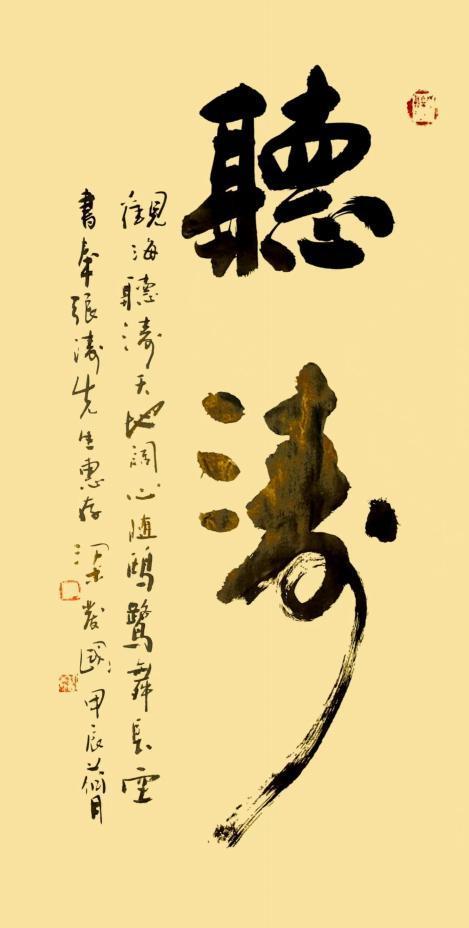 聽濤
觀海聽濤天地闊心隨鷗鷺舞長空
書奉張濤先生惠存 梁發國 甲辰荷月